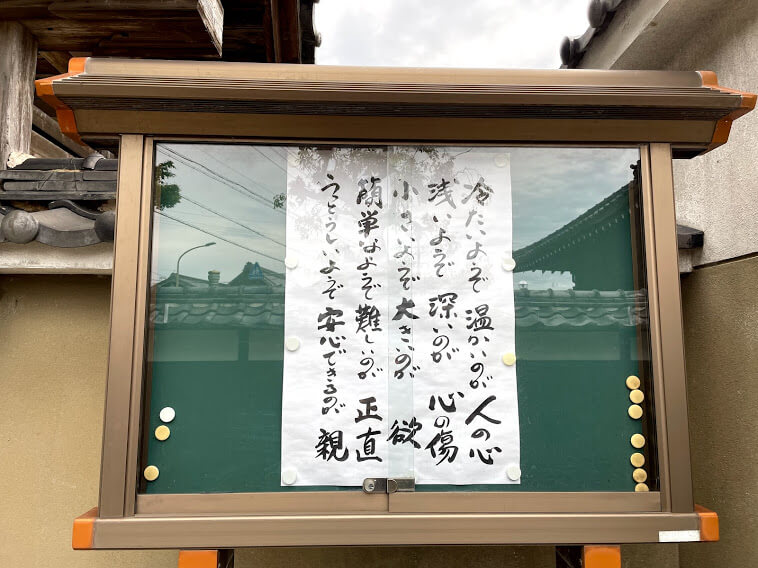 冷たいようで 温かいのが 人の心
浅いようで 深いのが 心の傷
小さいようで 大きいのが 欲
簡単なようで 難しいのが 正直
うっとうしいようで 安心できるのが 親